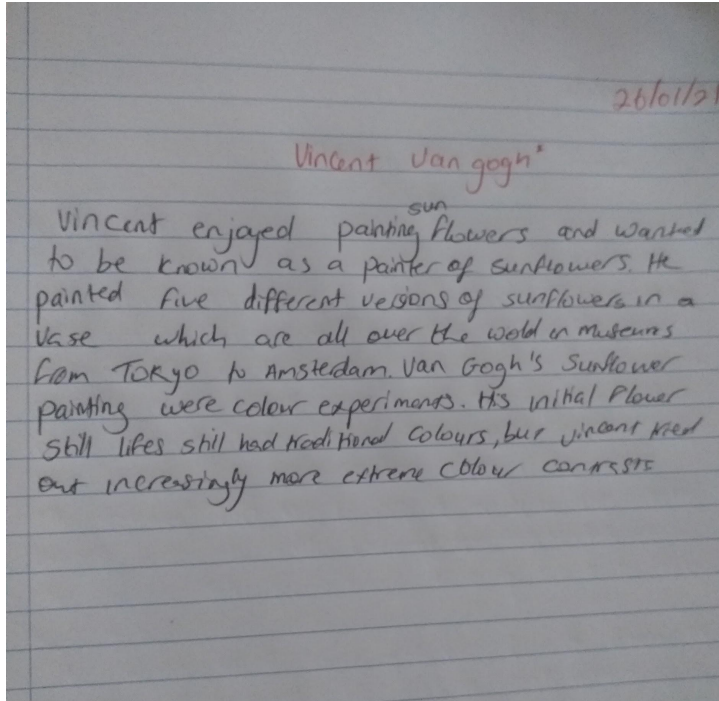 26/01/21
Vincent Van gogh
sun
Vincent enjoyed painting flowers and wanted
to be known as a painter of sunflowers. He
painted five different versions of sunflowers in a
Vase which are all over the world in museums
from Tokyo to Amsterdam. Van Gogh's Sunflower
painting were colour experiments. His initial flower
Still lifes still had traditional colours, but vincent tried
out increasingly more extreme colour